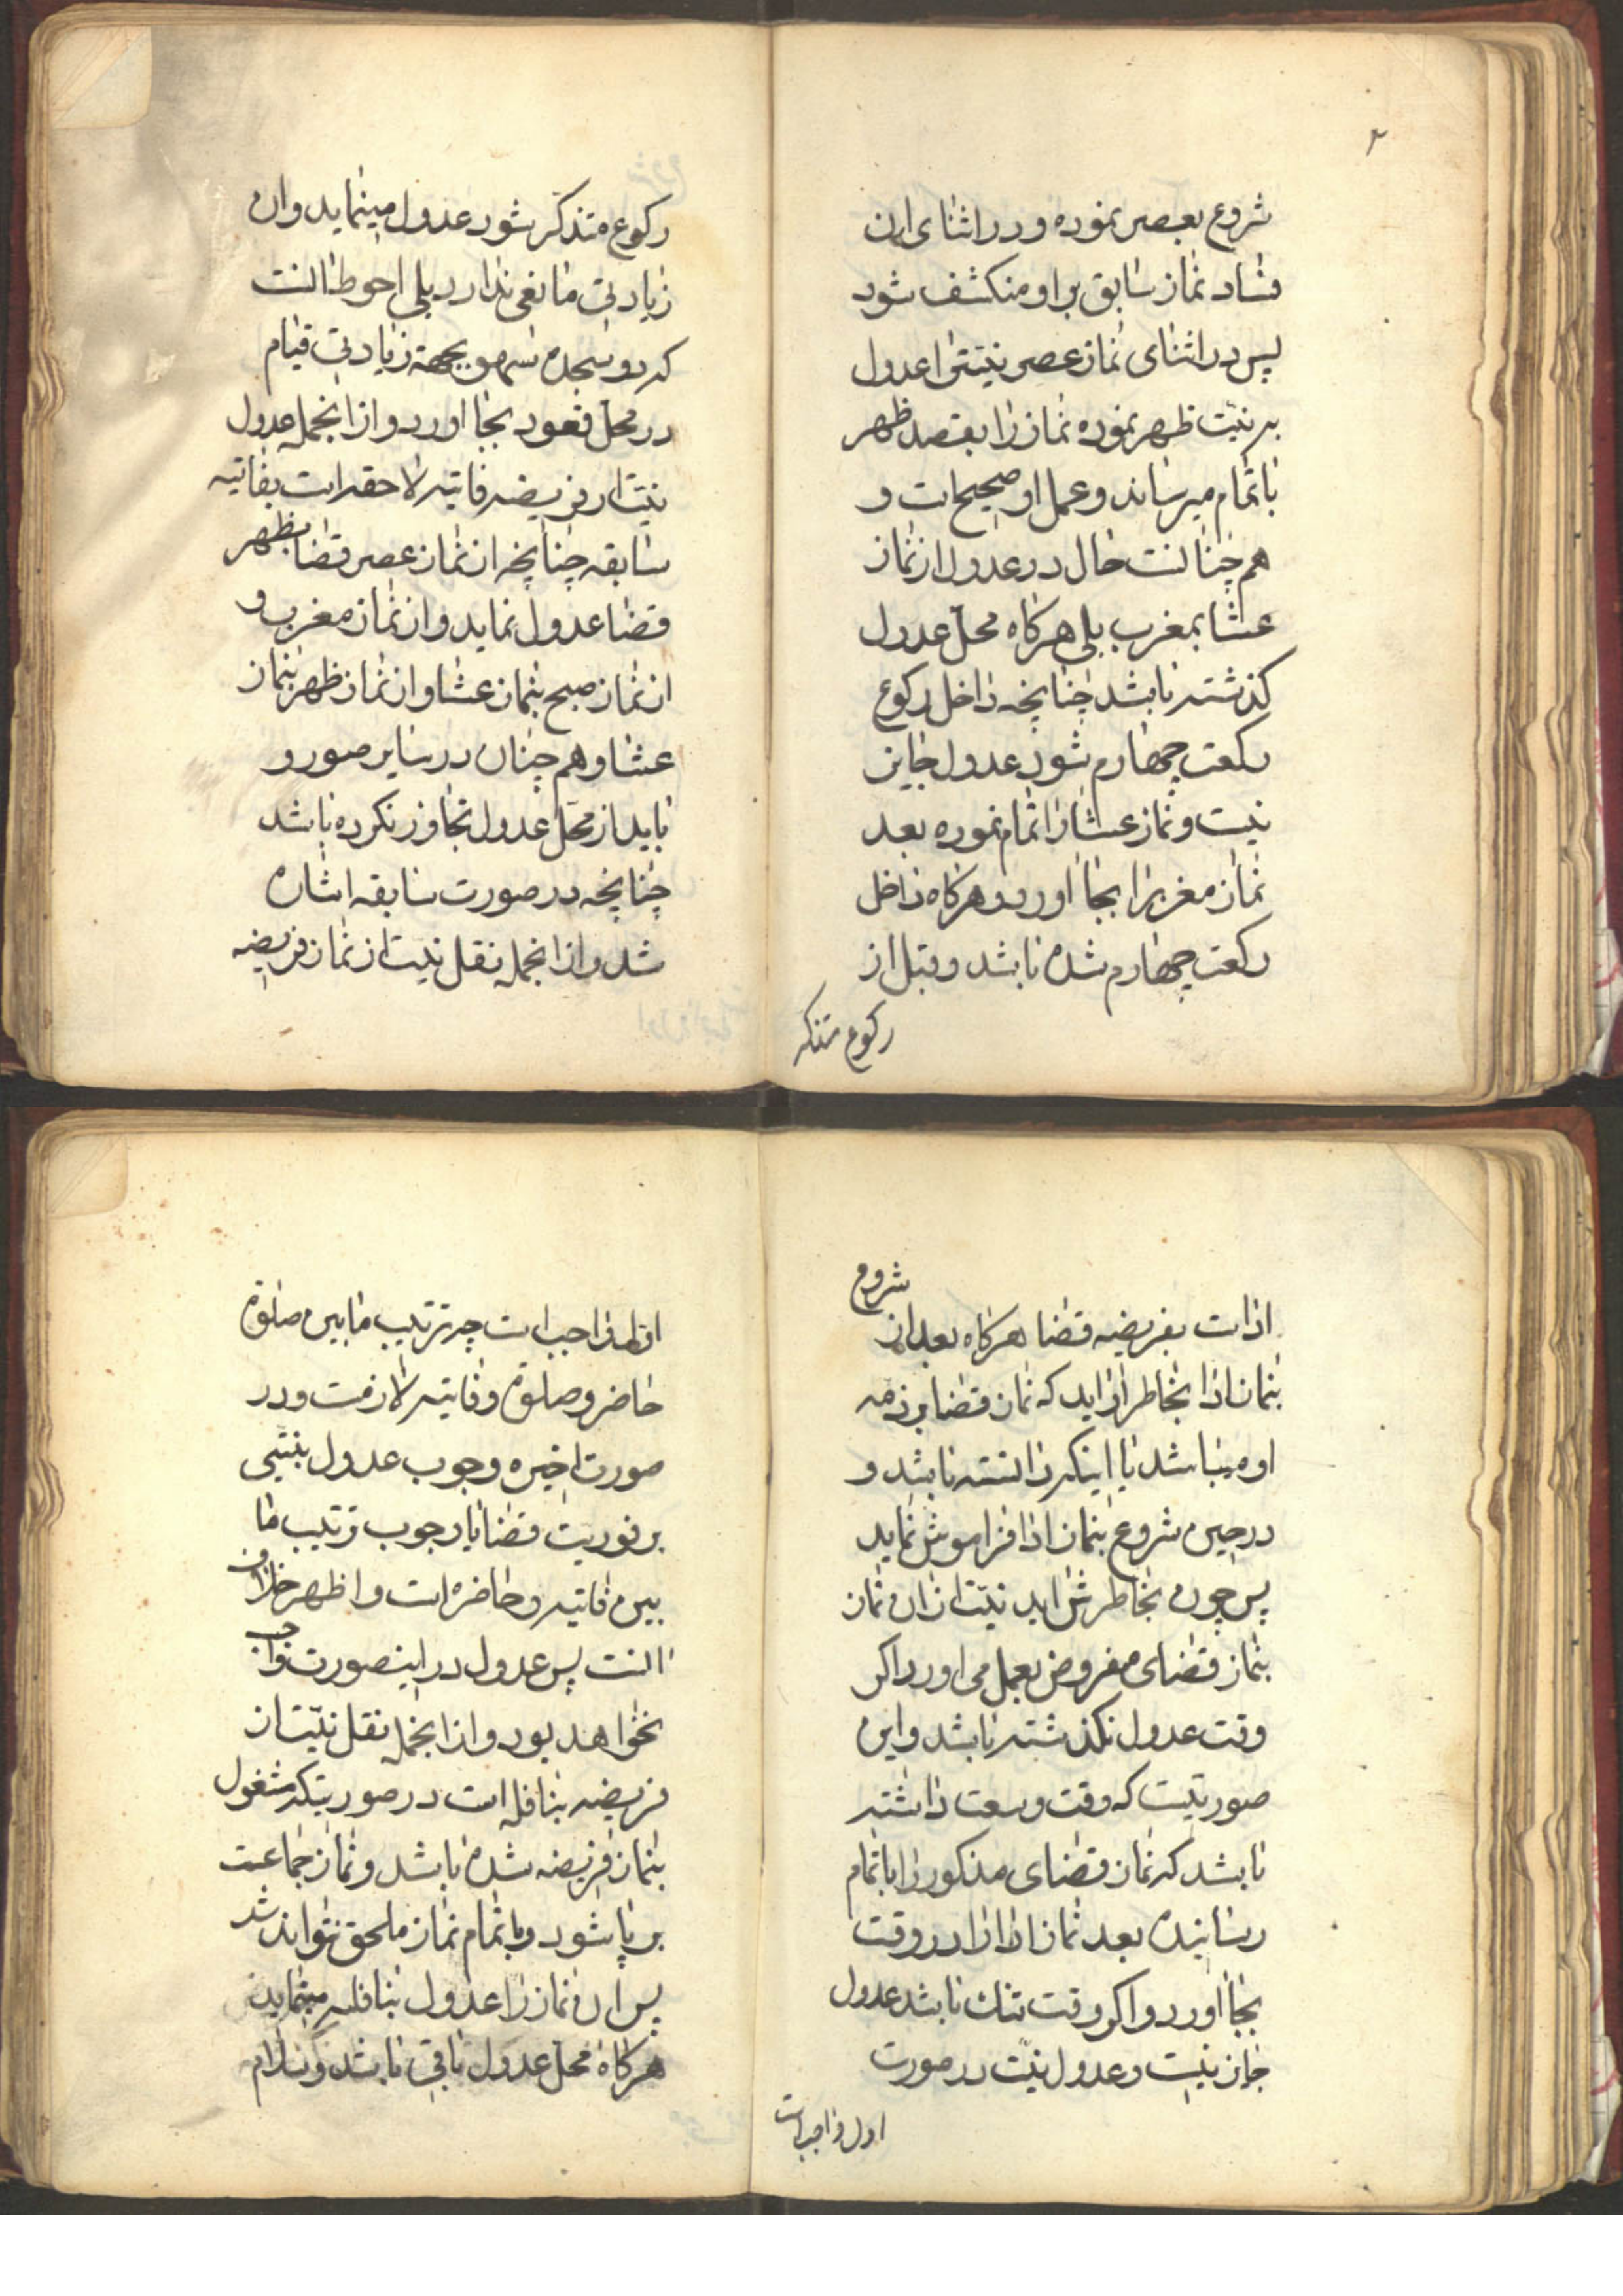 ۲
شروع بعصر نموده و در اثنای ان
فساد نماز سابق بر او منکشف شود
پس در اثنای نماز عصر نیتش را عدول
به نیّت ظهر نموده نماز را بقصد ظهر
باتمام میرساند و عمل او صحیح است و
هم چنانست حال در عدول از نماز
عشا بمغرب بلی هرکاه محلّ عدول
کذشته باشد چنانچه داخل رکوع
رکعت چهارم شود عدول جایز
نیست و نماز عشا را تمام نموده بعد
نماز مغرب را بجا اورد و هرکاه داخل
رکعت چهارم شده باشد و قبل از
رکوع متذکر
رکوع متذکّر شود عدول مینماید و ان
زیادتی مانعی ندارد بلی احوط انست
که دو سجده سهو بجهة زیادتی قیام
در محلّ قعود بجا اورد و از انجمله عدول
نیّت از فریضه فائیته لاحقه است بفائیته
سابقه چنانچه از نماز عصر قضا بظهر
قضا عدول نماید و از نماز مغرب و
از نماز صبح بنماز عشا و از نماز ظهر بنماز
عشا و هم چنان در سایر صور و
باید از محلّ عدول تجاوز نکرده باشد
چنانچه در صورت سابقه اشاره
شد و از انجمله نقل نیّت از نماز فریضه
اداست بفریضه قضا هرکاه بعد از شروع
بنماز ادا بخاطر او اید که نماز قضا بر ذمه
او میباشد یا اینکه دانسته باشد و
در حین شروع بنماز ادا فراموش نماید
پس چون بخاطرش اید نیّت از ان نماز
بنماز قضای مفروض بعمل می اورد اکر
وقت عدول نکذشته باشد و این
صورتیست که وقت وسعت داشته
باشد که نماز قضای مذکور را باتمام
رسانیده بعد نماز ادا را در وقت
بجا اورد و اکر وقت تنک باشد عدول
جایز نیست و عدول نیّت در صورت
اول واجب است
اول واجب است چه ترتیب مابین صلوة
حاضر و صلوة و فائیته لازمست و در
صورت اخیره وجوب عدول مبتنی
بر فوریت قضا یا وجوب ترتیب ما
بین فائیته و حاضره است و اظهر خلاف
انست پس عدول در اینصورت واجب
نخواهد بود و از انجمله نقل نیّت از
فریضه بنافله است در صورتیکه مشغول
بنماز فریضه شده باشد و نماز جماعت
بر پا شود و باتمام نماز ملحق نتواند شد
پس ان نماز را عدول بنافله مینماید
هرکاه محل عدول باقی باشد و سلام